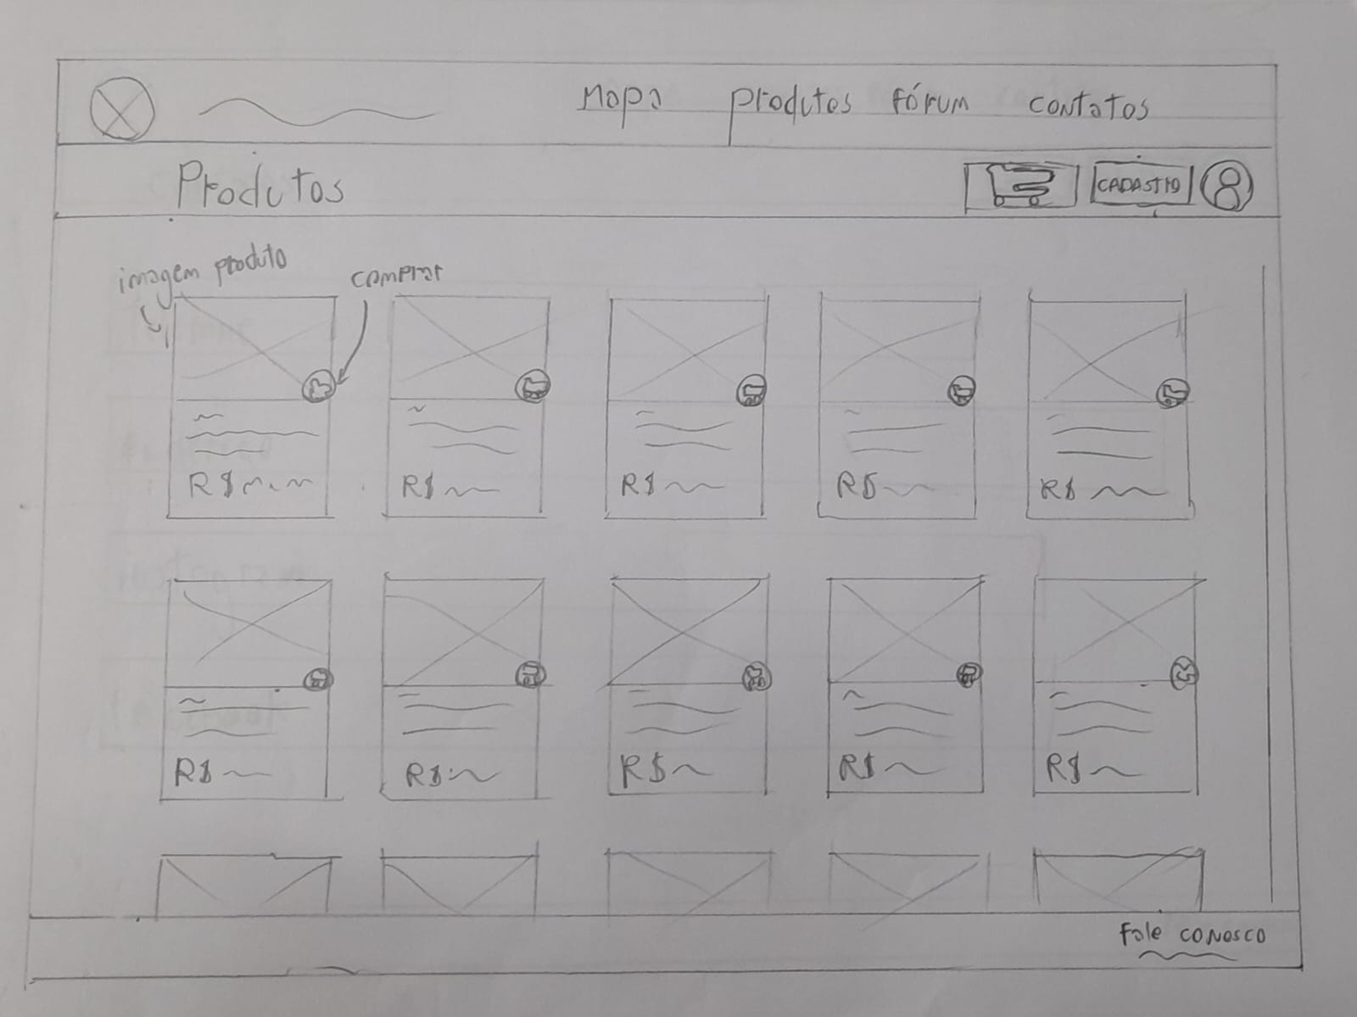 Mapa produtos fórum contatos
Produtos CADASTRO
imagem produto
comprar
R$ R$ R$ R$ R$
R$ R$ R$ R$ R$
Fale conosco